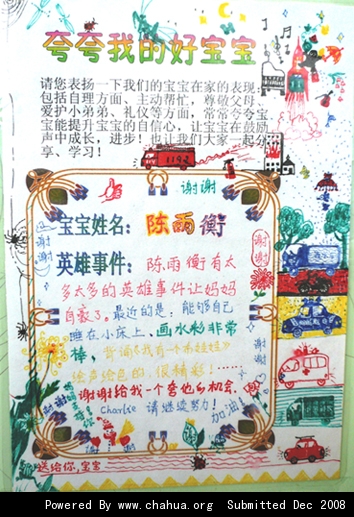 夸夸我的好宝宝
请您表扬一下我们的宝宝在家的表现
包括自理方面、主动帮忙，尊敬父母，
爱护小弟弟、礼仪等方面，常常夸夸宝
宝能提升宝宝的自信心，让宝宝在鼓励
声中成长，进步！也让我们大家一起分
享、学习！
1192
谢谢
宝宝姓名：陈雨衡
英雄事件：陈雨衡有太
多太多的英雄事件让妈妈
自豪了。最近的是：能够自己
睡在小床上、画水彩非常
棒，背诵《我有一个布娃娃》
绘声绘色的，很精彩！……
谢谢给我一个夸他的机会、
Charlie 请继续努力！加油！
谢谢
谢谢
送给你，宝宝
Powered By www.chahua.org Submitted Dec 2008